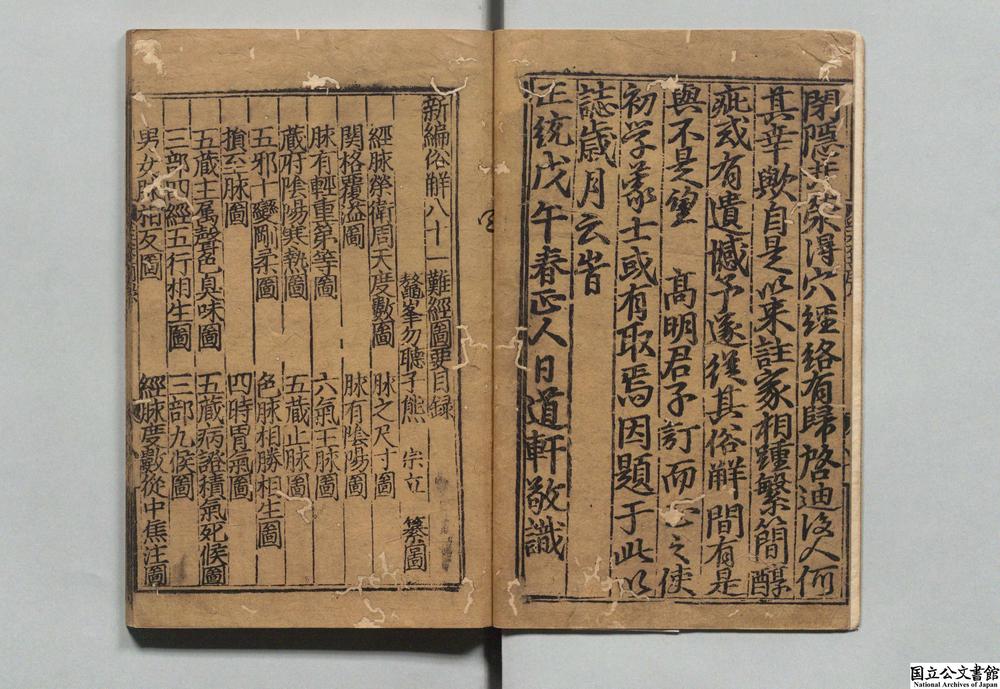 閉隱其滎得穴經絡有歸啓迪後人何
其幸歟自是以来註家相踵繁簡醇
疵或有遺憾予遂従其俗解間有是
與不是望　高明君子訂而正之使
初学義士或有取焉因題于此以
誌歳月云旹
正統戊午春正人日道軒敬識
新編俗解八十一難經圖要目録
鼇峯勿聽子熊　宗立　纂圖
經脉榮衛周天度數圖　脉之尺寸圖
関格覆溢圖　脉有陰陽圖
脉有輕重第等圖　六氣王脉圖
蔵府陰陽寒熱圖　五蔵止脉圖
五邪十變剛柔圖　色脉相勝相生圖
損至脉圖　四時胃氣圖
五蔵主属聲色臭味圖　五蔵病證積氣死候圖
三部四經五行相生圖　三部九候圖
男女脉相反圖　經脉度數從中焦注圖
国立公文書館
National Archives of Japan